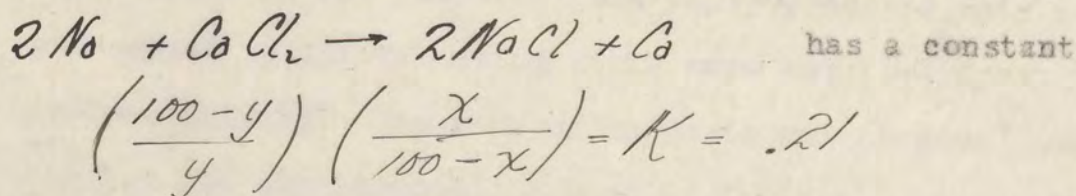 2Na + CaCl₂ → 2NaCl + Ca has a constant
(100-y / y) (x / 100-x) = K = .21